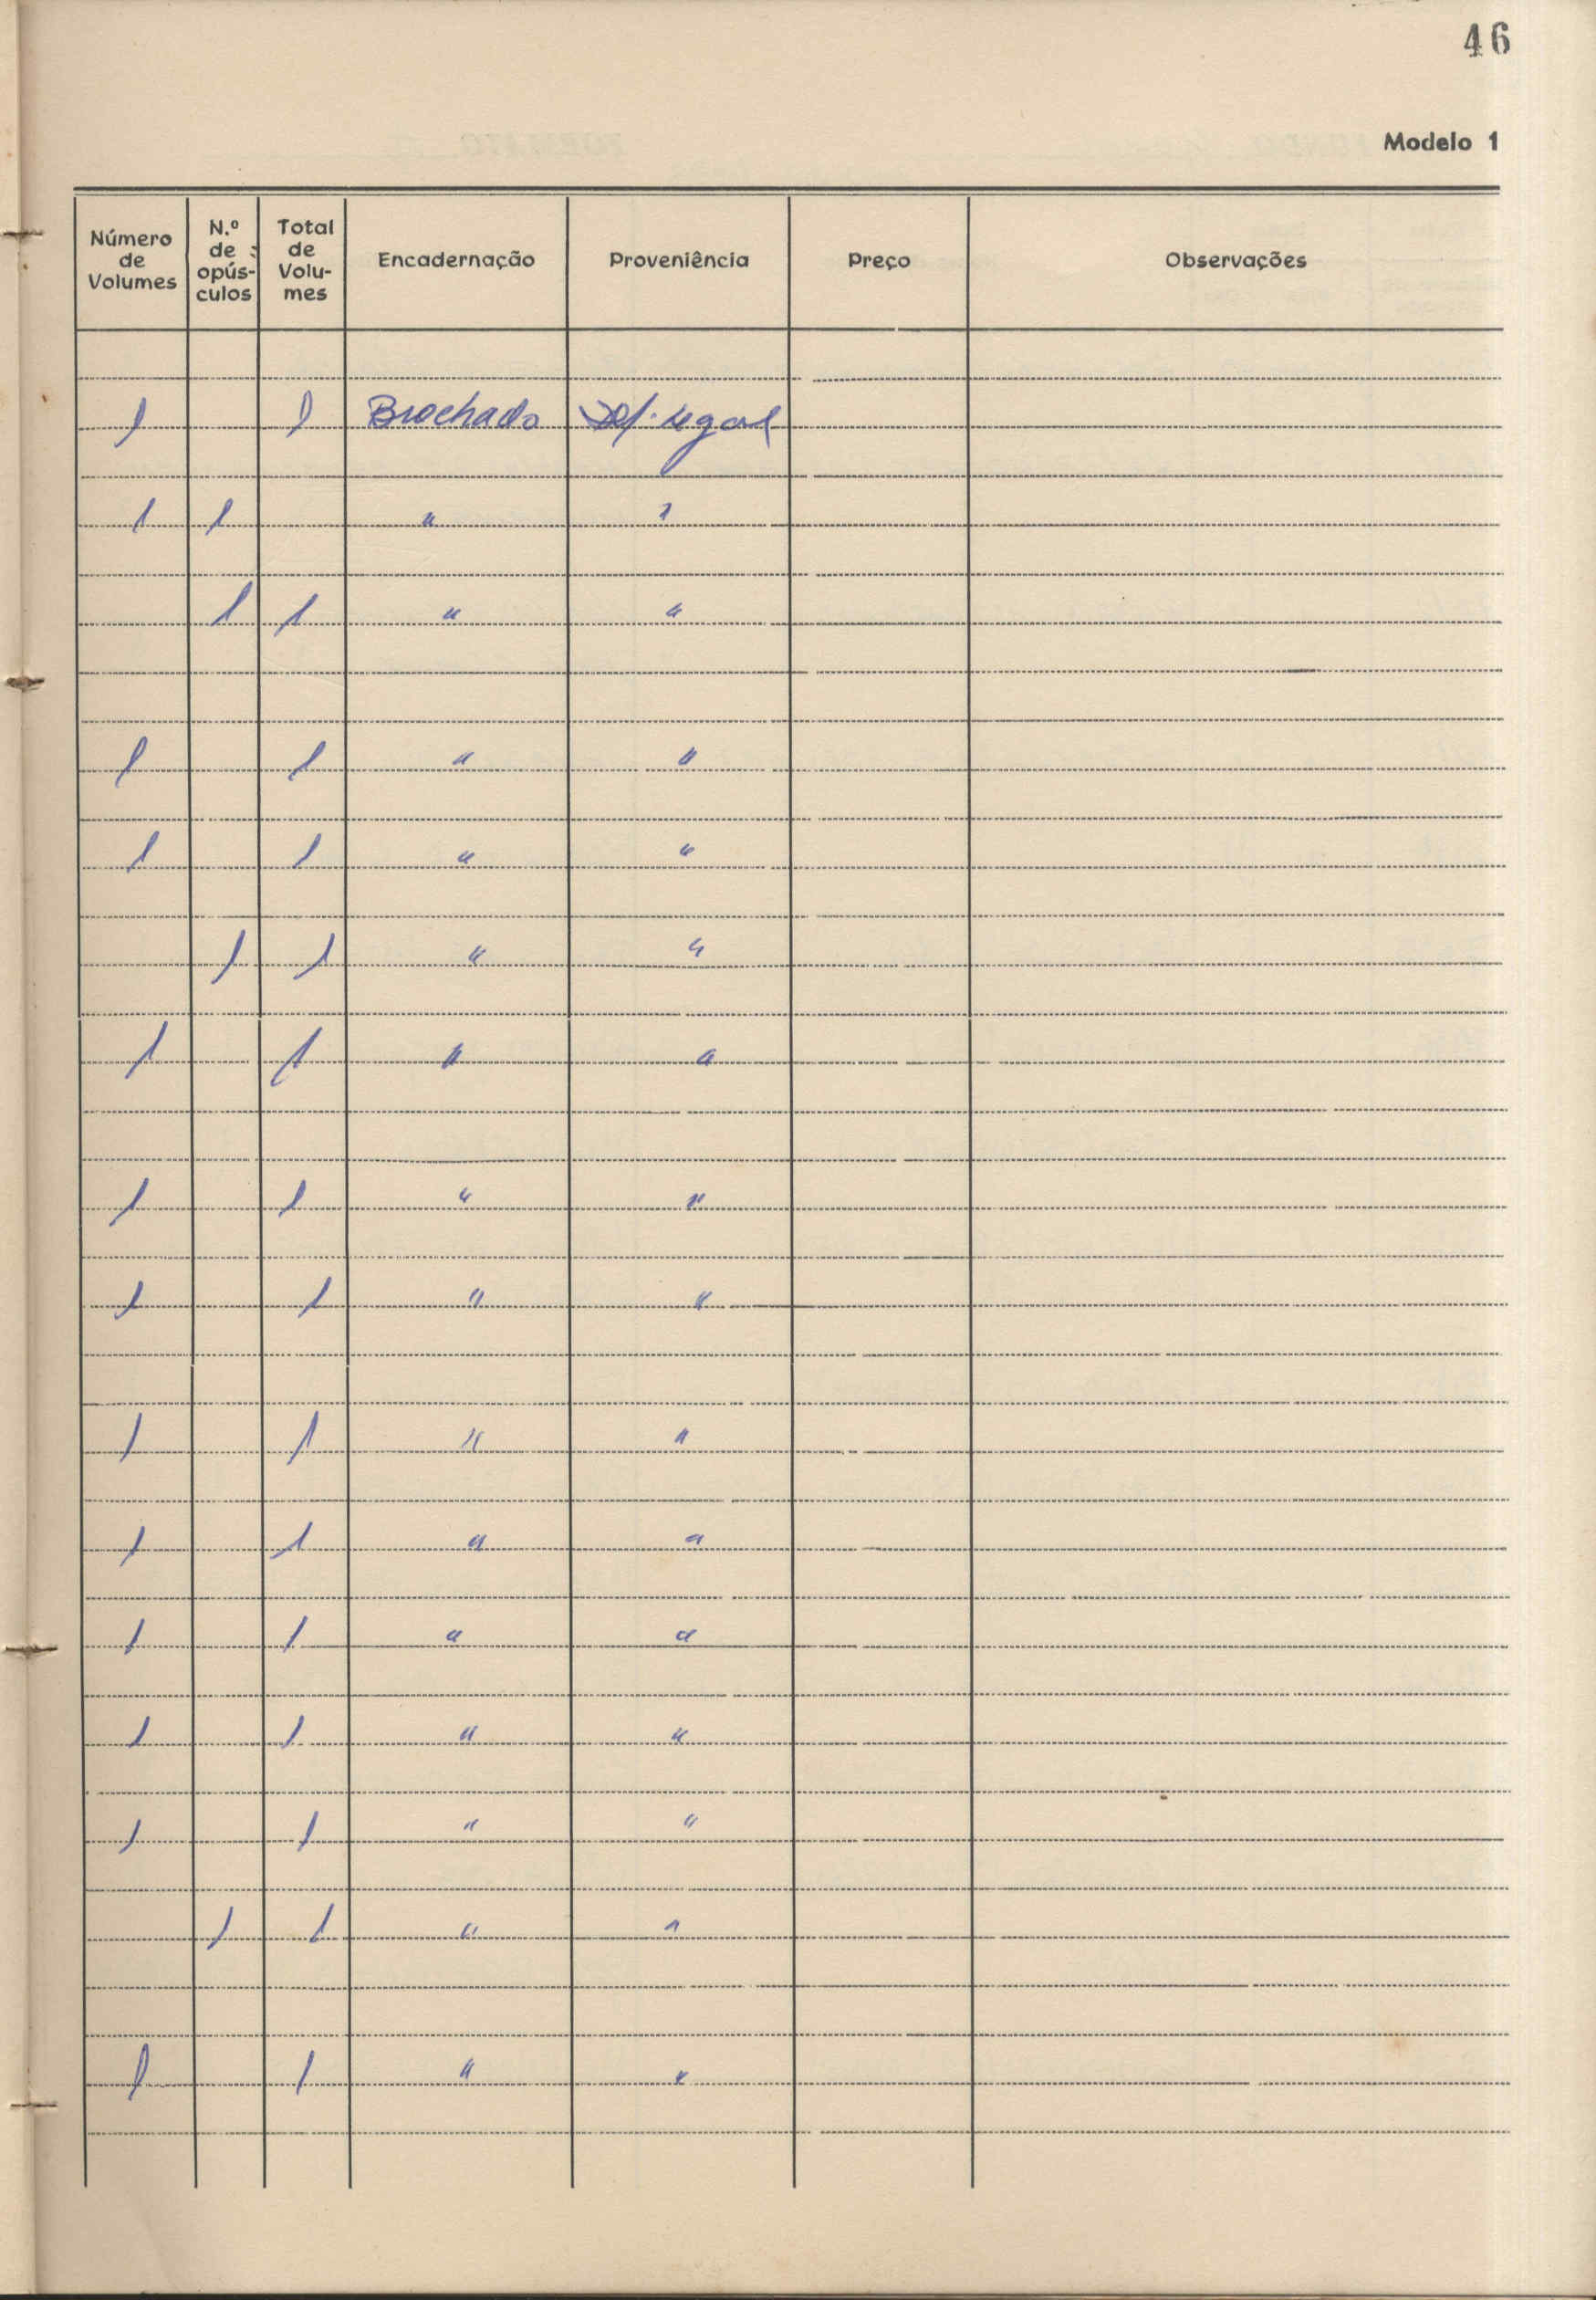 46
Modelo 1
Número de Volumes | N.º de opús-culos | Total de Volu-mes | Encadernação | Proveniência | Preço | Observações
1 | | 1 | Brochado | Dep. Legal | |
1 | 1 | | " | " | |
| 1 | 1 | " | " | |
1 | | 1 | " | " | |
1 | | 1 | " | " | |
| 1 | 1 | " | " | |
1 | | 1 | " | " | |
1 | | 1 | " | " | |
1 | | 1 | " | " | |
1 | | 1 | " | " | |
1 | | 1 | " | " | |
1 | | 1 | " | " | |
1 | | 1 | " | " | |
1 | | 1 | " | " | |
| 1 | 1 | " | " | |
1 | | 1 | " | " | |